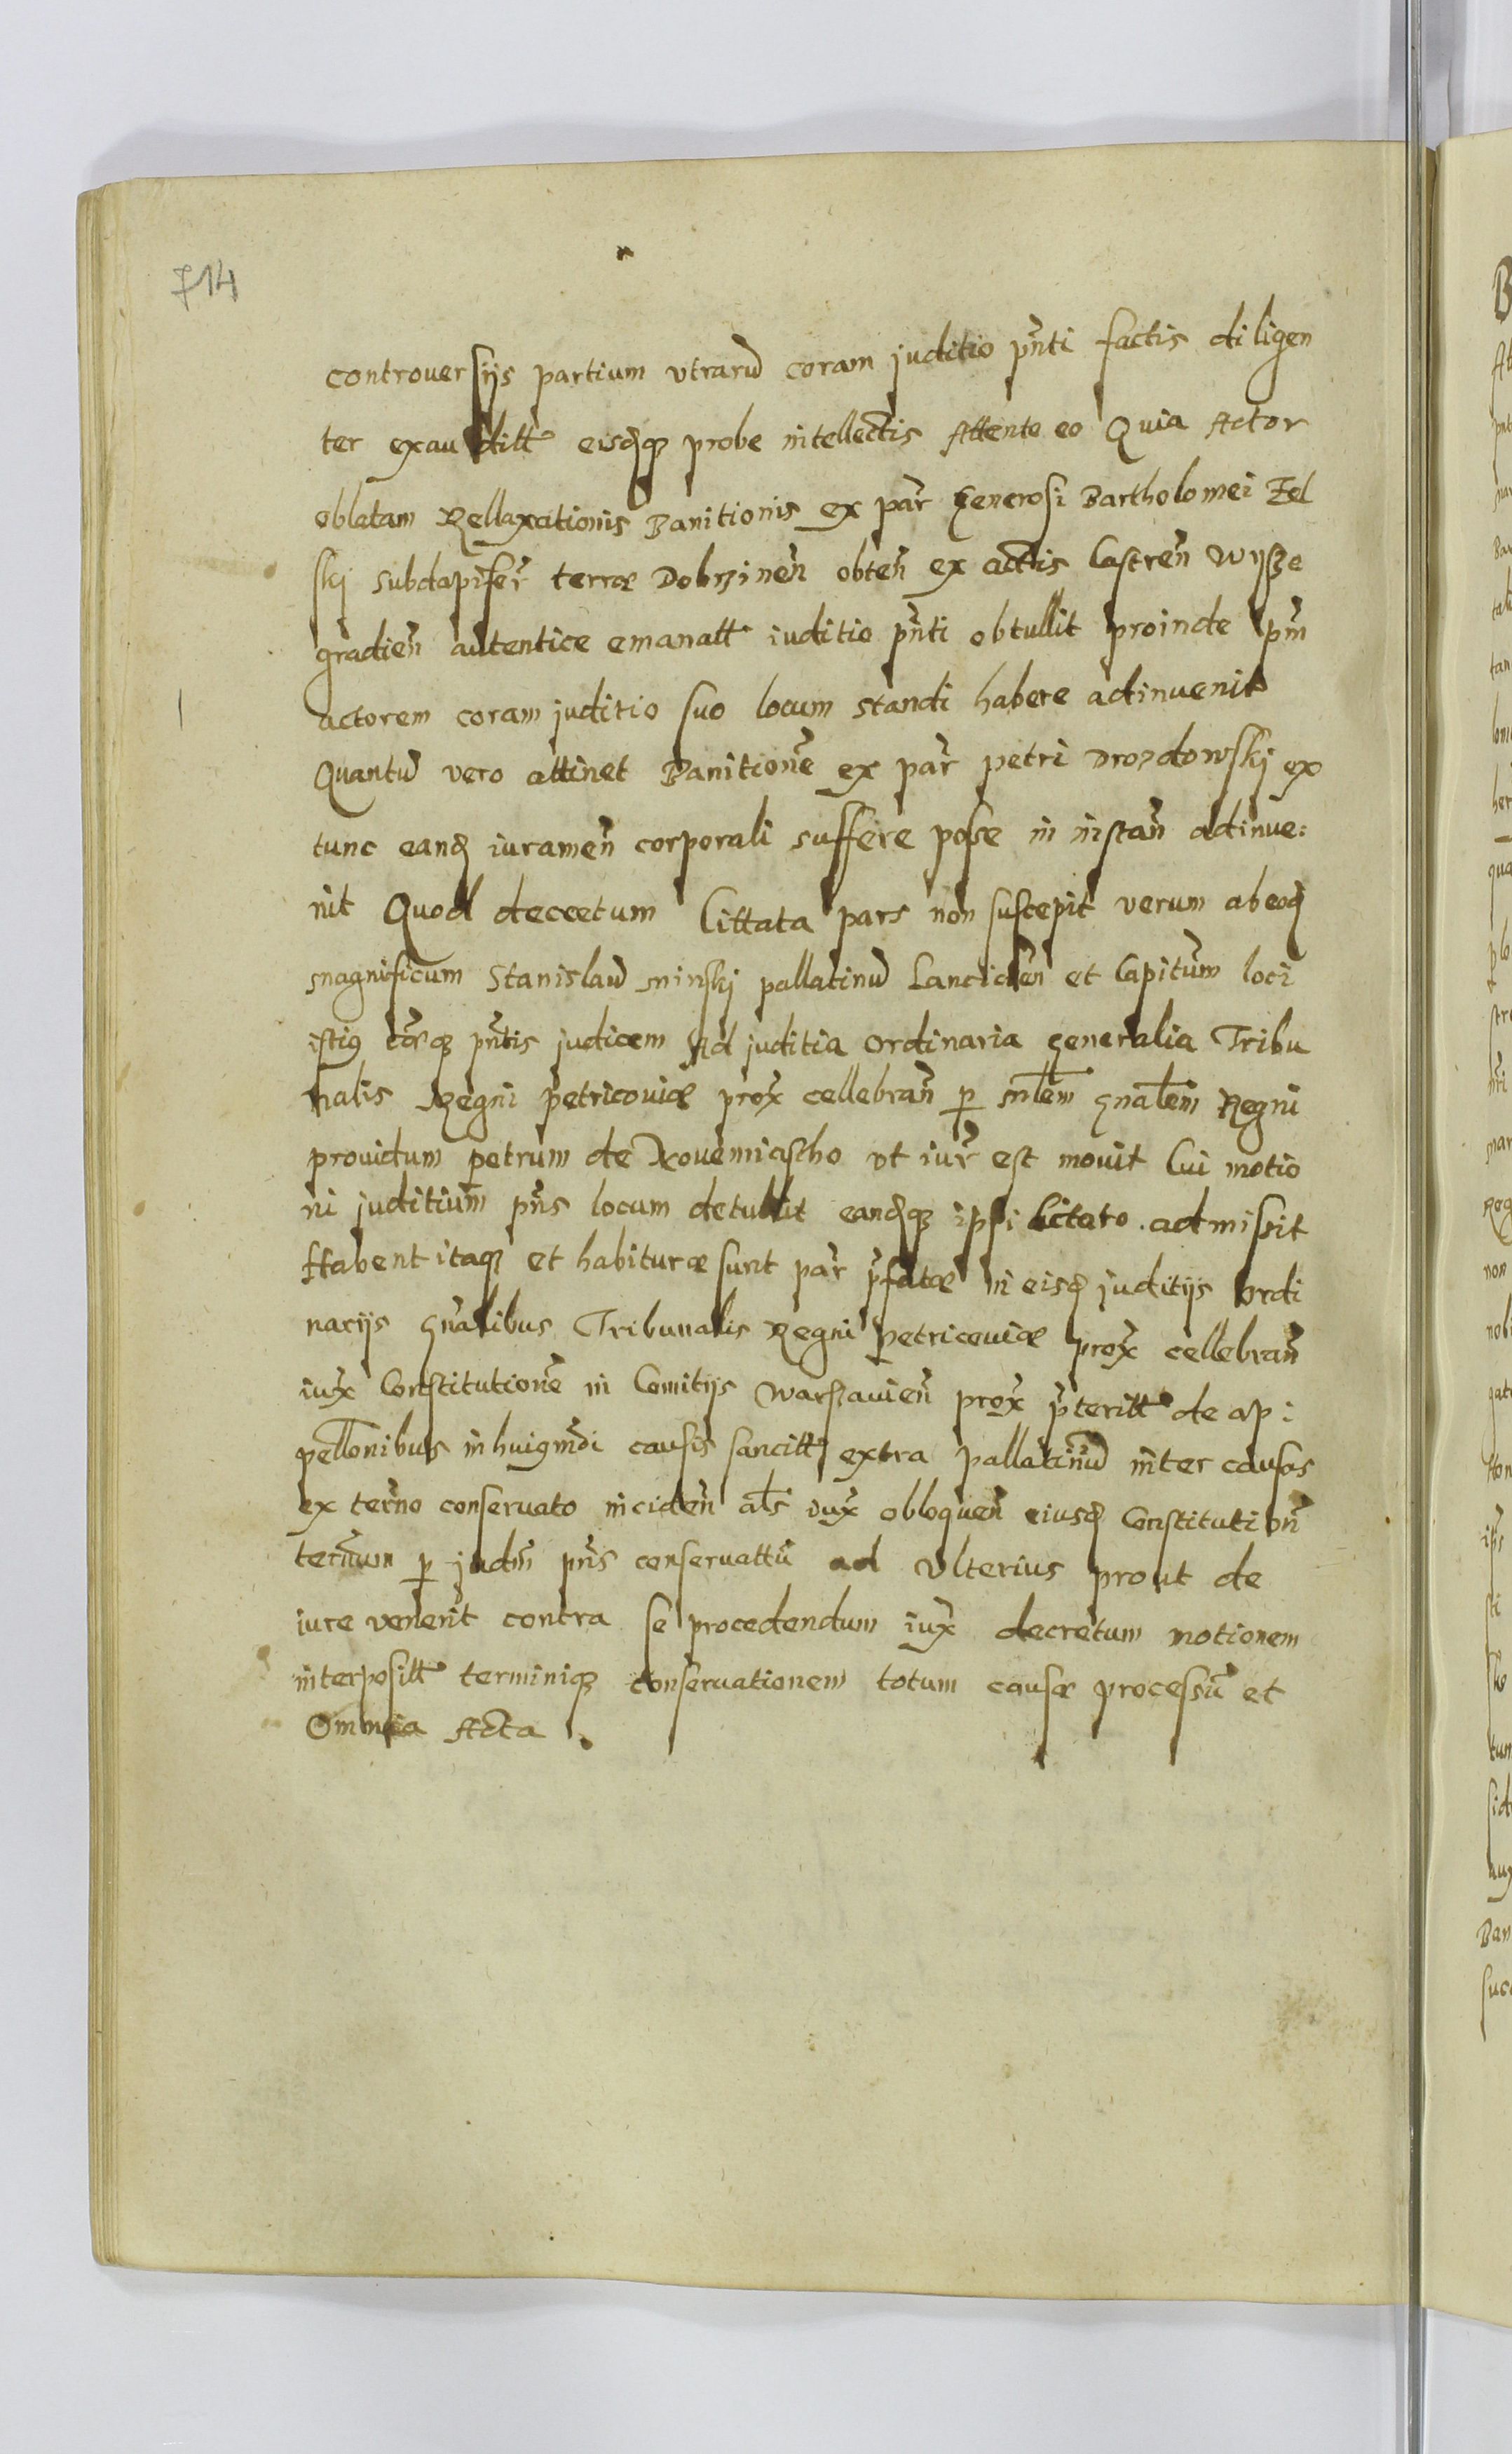 714
controuersijs partium vtrarū coram juditio pñti factis diligen
ter exauditt eisdq̃ probe intellectis Attento eo Quia Actor
oblatam Rellaxationis Banitionis ex par̃ Generosi Bartholomei Zel
skj subdapifer̃ terræ Dobrzineñ obteñ ex actis Castreñ Wysze
gradieñ autentice emanatt iuditio pñti obtullit proinde ipm̃
actorem coram juditio suo locum standi habere adinuenit
Quantū vero attinet Banitionẽ ex par̃ petri Drozdowskj ex
tunc eand iurameñ corporali suffere posse in instañ adinue:
nit Quod decretum Cittata pars non suscepit verum ab eod
magnificum Stanislaū minskj pallatinū Lancicieñ et Capitũm loci
istius cor̃q̃ pñtis judicem Ad juditia ordinaria generalia Tribu
nalis Regni petricouiæ prox̃ cellebrañ p mlẽm gnalẽm Regni
prouidum petrum de Nouemiastho vt iur̃ est mouit Cui motio
ni juditium pñs locum detullit eandq̃ ipsi Citato admissit
Habent itaq̃ et habituræ sunt par̃ p̃fatæ in eisd juditijs ordi
narijs gñalibus Tribunalis Regni petricouiæ prox̃ cellebrañ
iux̃ Constitutionẽ in Comitijs Warszauieñ prox̃ p̃teritt de ap:
pellonibus in huiusmõi causis sancitt extra pallatinũ inter causas
ex terño conseruato incideñ als̃ iux̃ obloqueñ eiusd Constitutioñ
terminum p judm̃ pñs conseruattũ ad vlterius prout de
iure venerit contra se procedendum iux̃ decretum motionem
interpositt terminiq̃ conseruationem totum causæ processũ et
Omnia Acta .